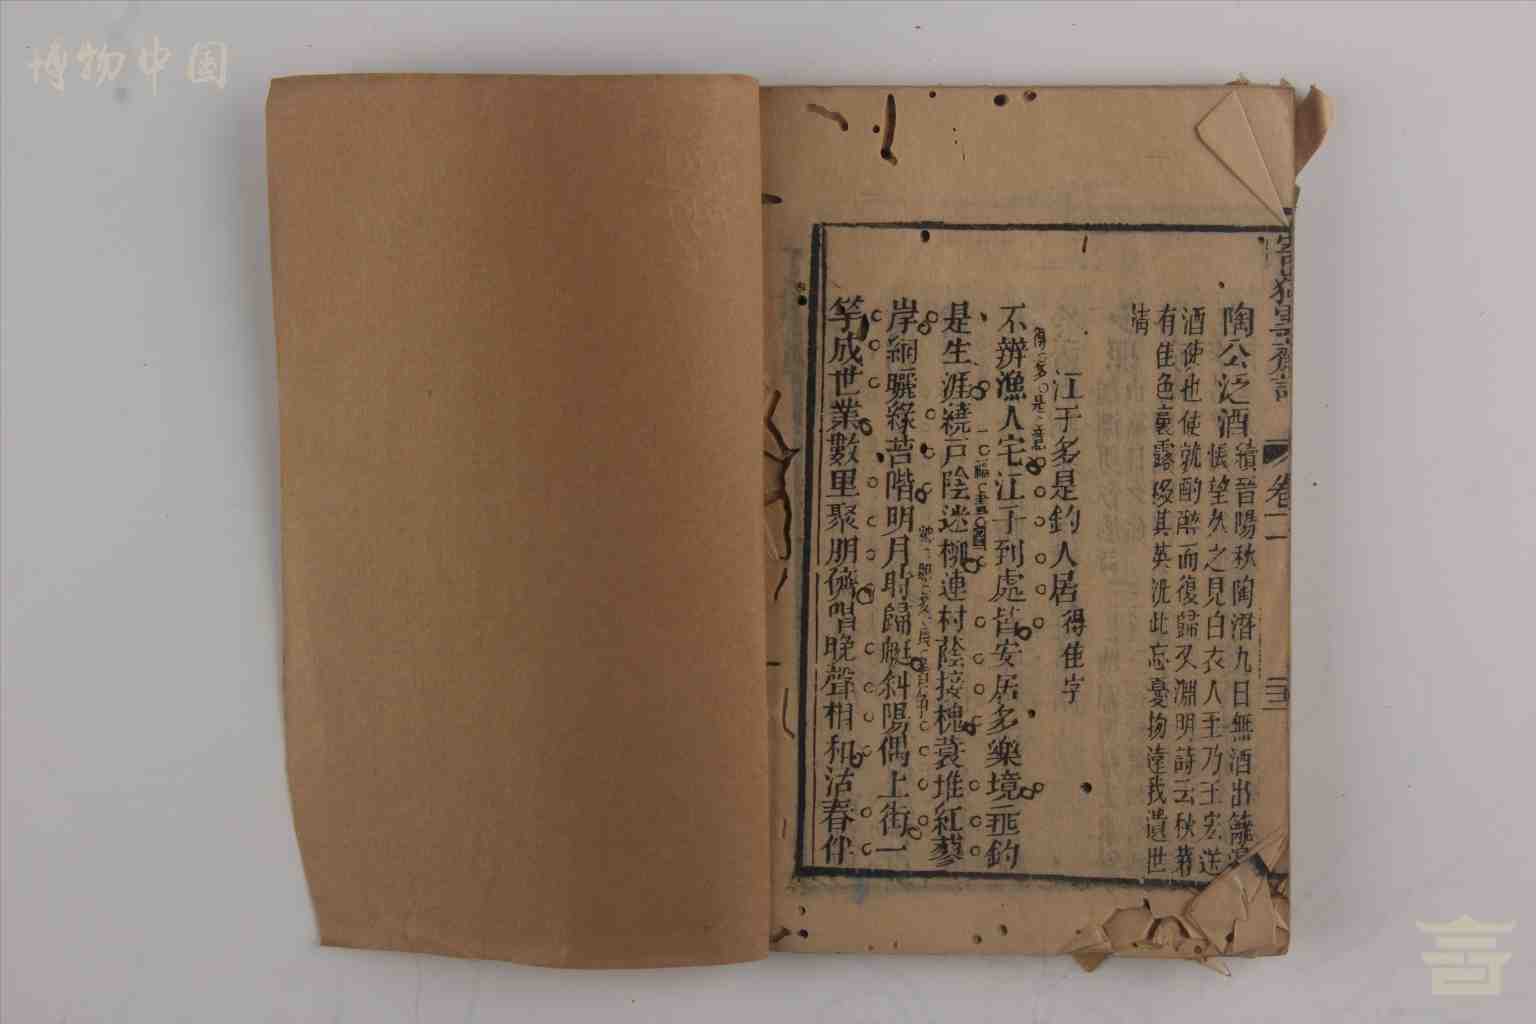 博物中国
陶公泛酒
續晉陽秋陶潛九日無酒出籬
悵望久之見白衣人至乃王宏送
酒使也使就酌醉而復歸又淵明詩云秋菊
有佳色裛露掇其英汎此忘憂物遠我遺世
情
卷二
江于多是釣人居
得佳字
不辨漁人宅江于到處皆安居多樂境垂釣
是生涯繞戸陰迷柳連村蔭接槐蓑堆紅蓼
岸網曬綠苔階明月時歸艇斜陽偶上街一
竿成世業數里聚朋儕唱晚聲相和沽春伴